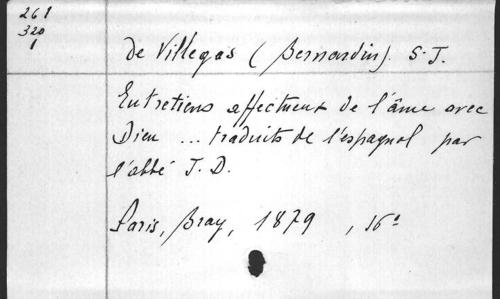 261
320
1
de Villegas (Bernardin). S.J.
Entretiens affectueux de l'âme avec
Dieu ... traduits de l'espagnol par
l'abbé J.D.
Paris, Bray, 1879, 16°